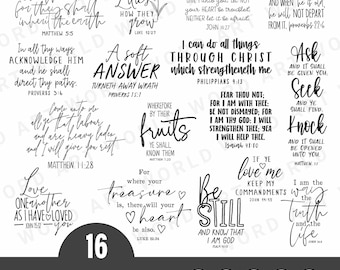 for they shall inherit the earth
MATTHEW 5:5
LILIES
HOW THEY
GROW
LUKE 12:27
your heart
be troubled
neither let it be afraid
JOHN 14:27
and when he is old,
he will NOT DEPART
FROM IT. proverbs 22:6
In all thy ways
ACKNOWLEDGE HIM
and he shall
direct thy paths
PROVERBS 3:6
A soft
ANSWER
TURNETH AWAY WRATH
PROVERBS 15:1
I can do all things
THROUGH CHRIST
which strengtheneth me
PHILIPPIANS 4:13
Ask
AND IT SHALL
BE GIVEN YOU,
Seek
AND YE
SHALL FIND,
Knock
AND IT SHALL
BE OPENED
UNTO YOU.
MATTHEW 7:7
Come unto me
all ye that labour
and are heavy laden
and I will give you rest
MATTHEW 11:28
WHEREFORE
BY THEIR
fruits
YE SHALL
KNOW THEM
MATTHEW 7:20
FEAR THOU NOT;
FOR I AM WITH THEE:
BE NOT DISMAYED; FOR
I AM THY GOD: I WILL
STRENGTHEN THEE; YEA
I WILL HELP THEE.
Isaiah 41:10
Love
ONE ANOTHER
AS I HAVE LOVED
YOU
JOHN 15:12
For
where your
treasure
is, there will your
heart
be also.
LUKE 12:34
Be
STILL
AND KNOW THAT
I AM GOD
PSALM 46:10
IF YE
love me
KEEP MY
COMMANDMENTS
JOHN 14:15
I am the
way the
truth and the
life
JOHN 14:6
16